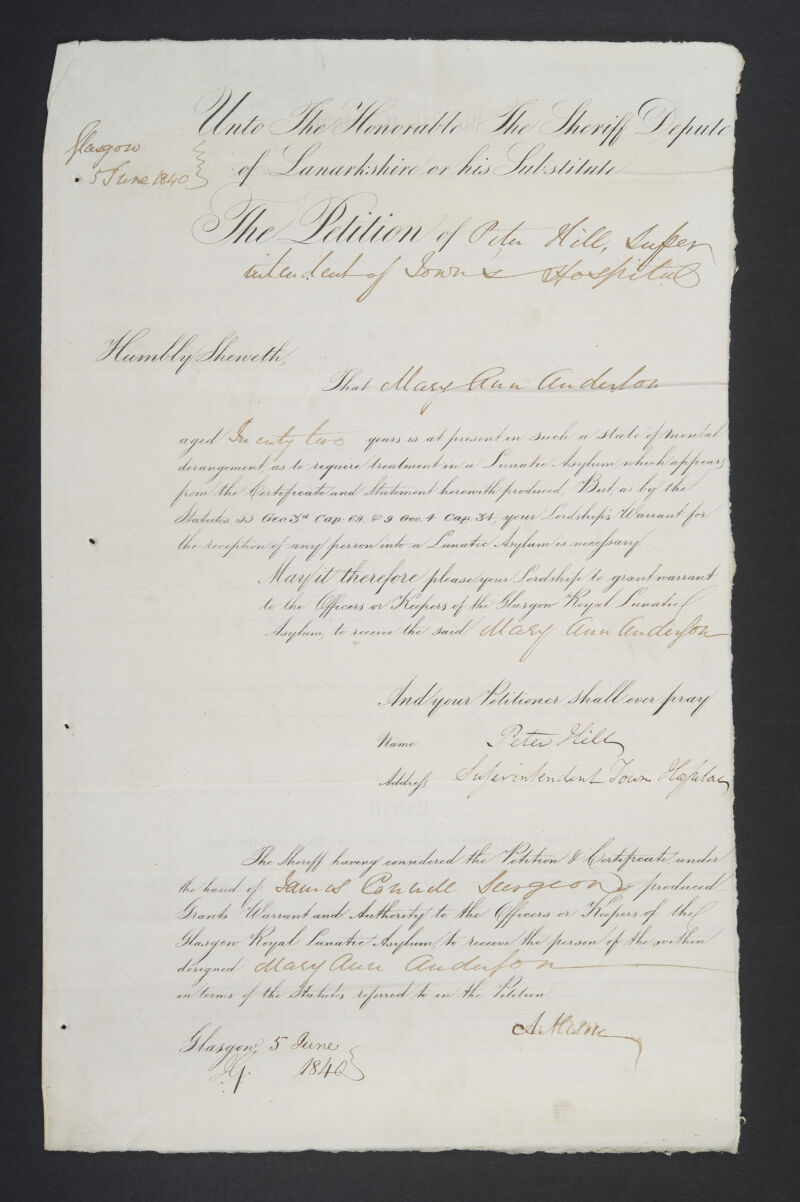 Unto The Honorable The Sheriff Depute
of Lanarkshire or his Substitute
Glasgow
5 June 1840
The Petition of Peter Hill, Super
intendent of Town's Hospital
Humbly Sheweth,
That Mary Ann Anderson
aged Twenty two years is at present in such a state of mental
derangement, as to require treatment in a Lunatic Asylum which appears
from the Certificate and Statement herewith produced, But, as by the
Statutes 55 Geo. 3d Cap. 69. & 9 Geo. 4 Cap. 34, your Lordship's Warrant for
the reception of any person into a Lunatic Asylum is necessary.
May it therefore please your Lordship to grant warrant
to the Officers or Keepers of the Glasgow Royal Lunatic
Asylum, to receive the said Mary Ann Anderson
And your Petitioner shall ever pray
Name Peter Hill
Address Superintendent Town Hospital
The Sheriff having considered the Petition & Certificate under
the hand of James Connell Surgeon produced
Grants Warrant and Authority to the Officers or Keepers of the
Glasgow Royal Lunatic Asylum, to receive the person of the within
designed Mary Ann Anderson
in terms of the Statutes referred to in the Petition
Glasgow, 5 June
1840